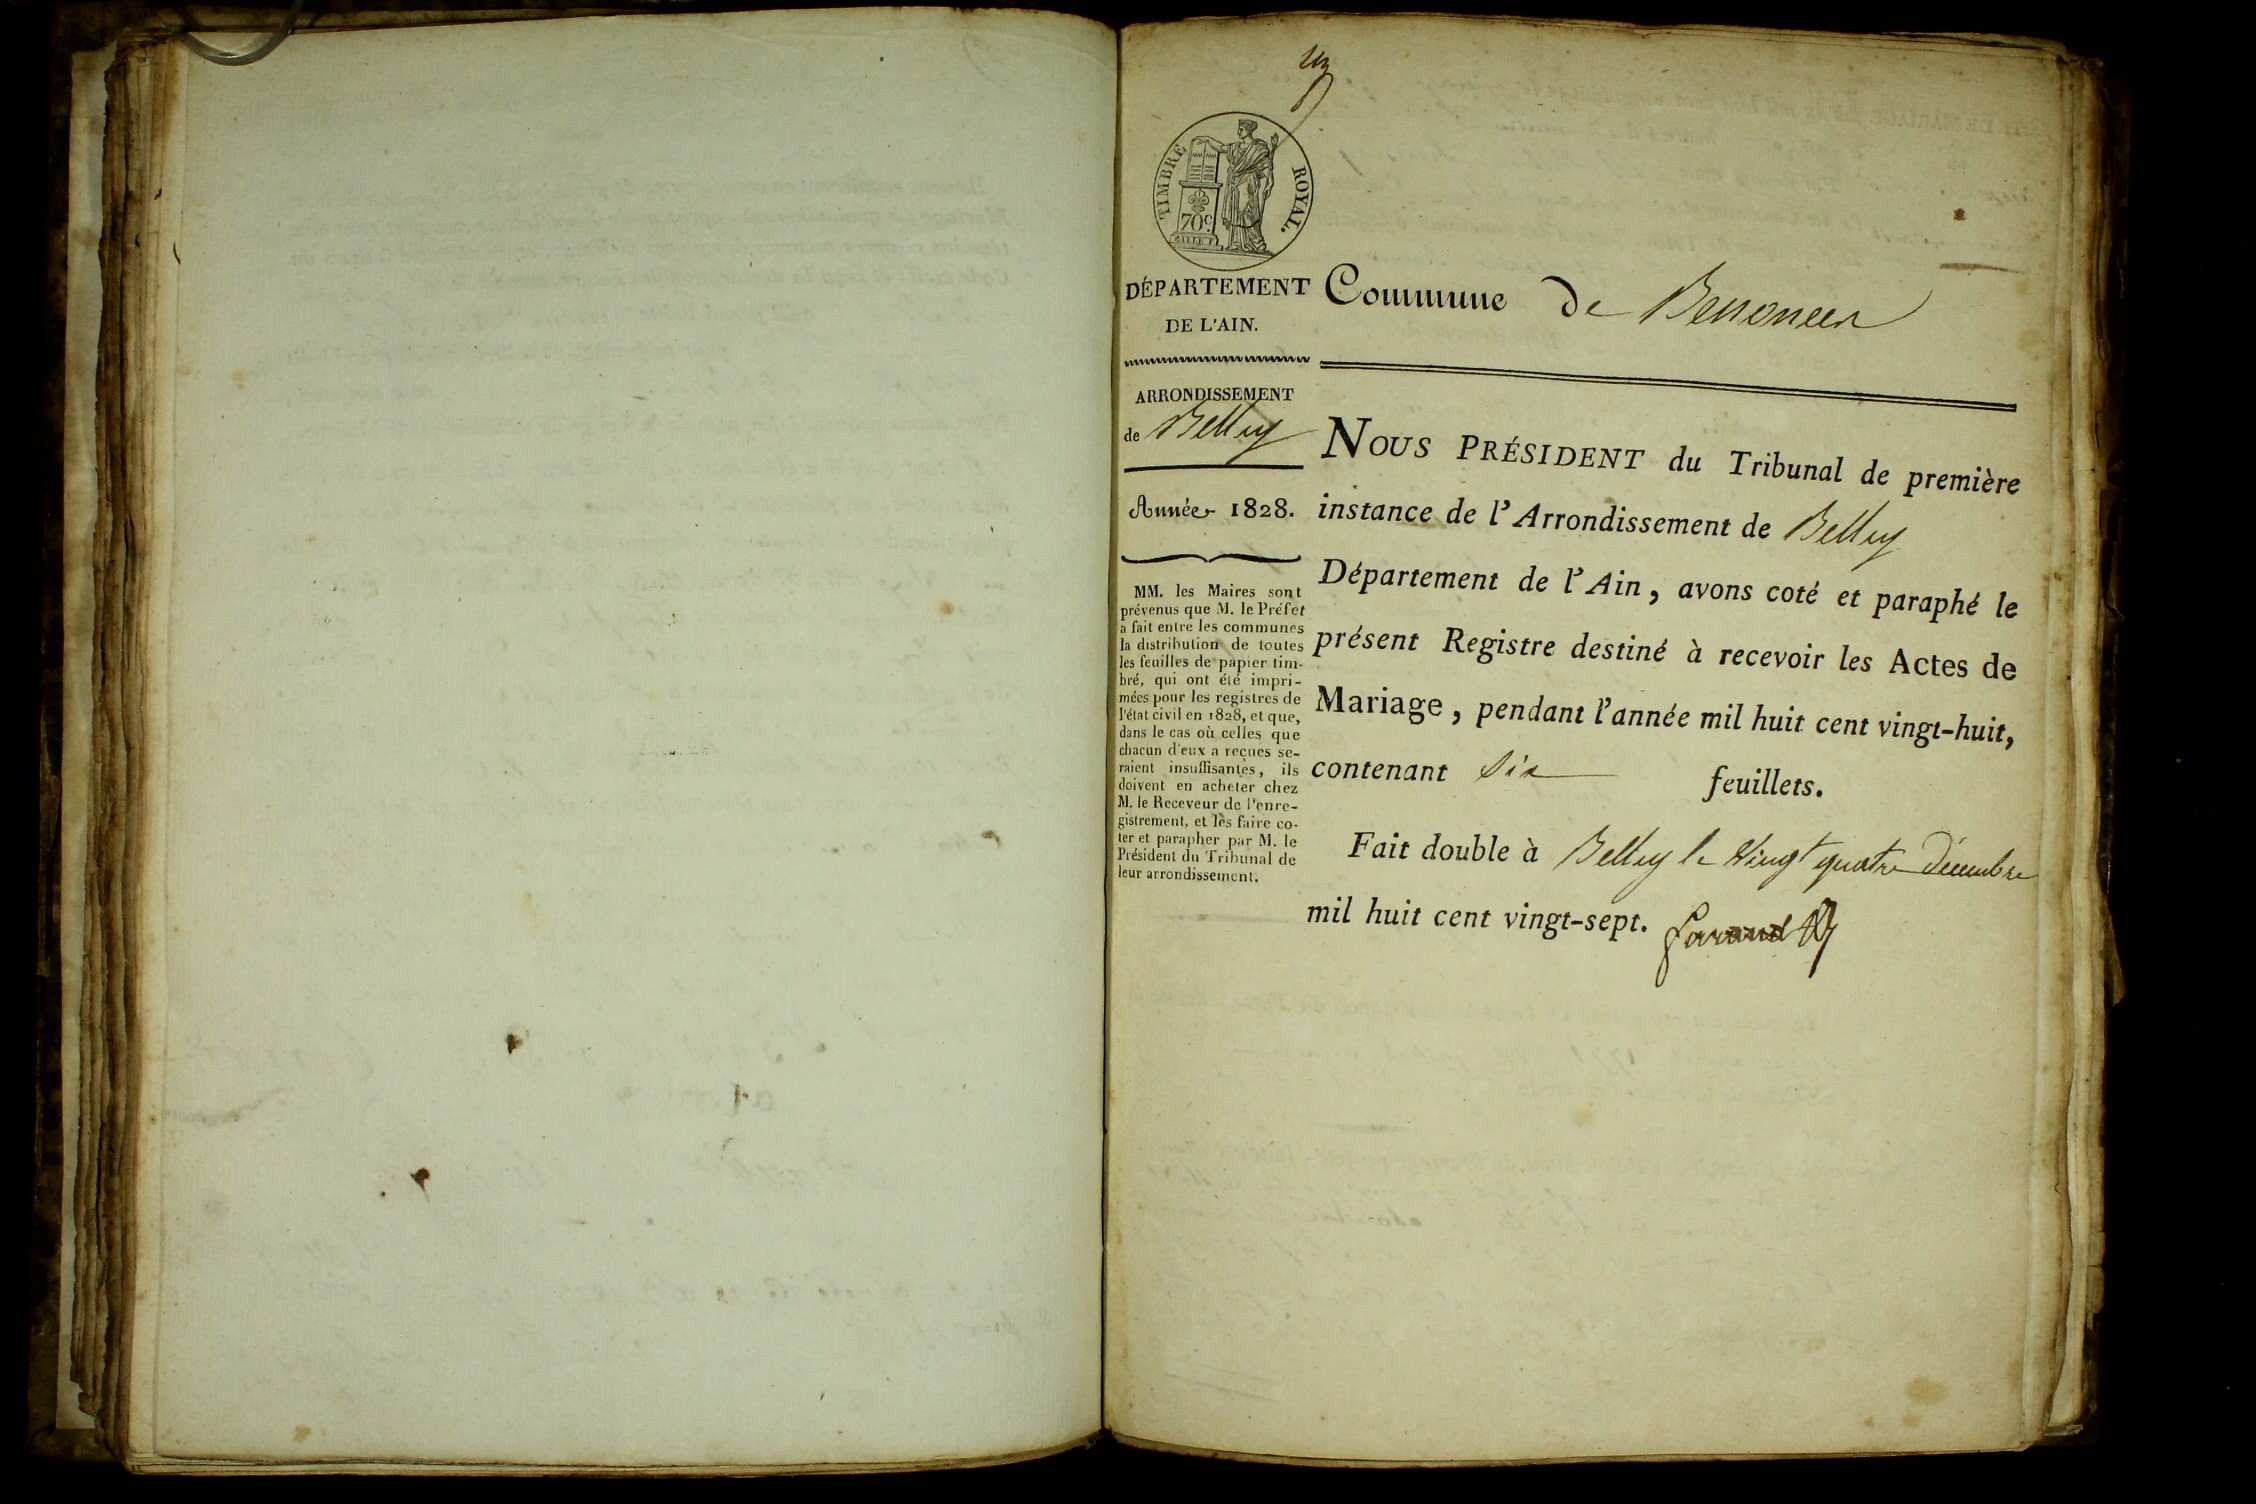 un
TIMBRE ROYAL.
70c
DÉPARTEMENT
DE L'AIN.
Commune de Benonces
ARRONDISSEMENT
de Belley
Année 1828.
MM. les Maires sont
prévenus que M. le Préfet
a fait entre les communes
la distribution de toutes
les feuilles de papier tim-
bré, qui ont été impri-
mées pour les registres de
l'état civil en 1828, et que,
dans le cas où celles que
chacun d'eux a reçues se-
raient insuffisantes, ils
doivent en acheter chez
M. le Receveur de l'enre-
gistrement, et les faire co-
ter et parapher par M. le
Président du Tribunal de
leur arrondissement.
NOUS PRÉSIDENT du Tribunal de première
instance de l'Arrondissement de Belley
Département de l'Ain, avons coté et paraphé le
présent Registre destiné à recevoir les Actes de
Mariage, pendant l'année mil huit cent vingt-huit,
contenant six feuillets.
Fait double à Belley le Vingt quatre décembre
mil huit cent vingt-sept.